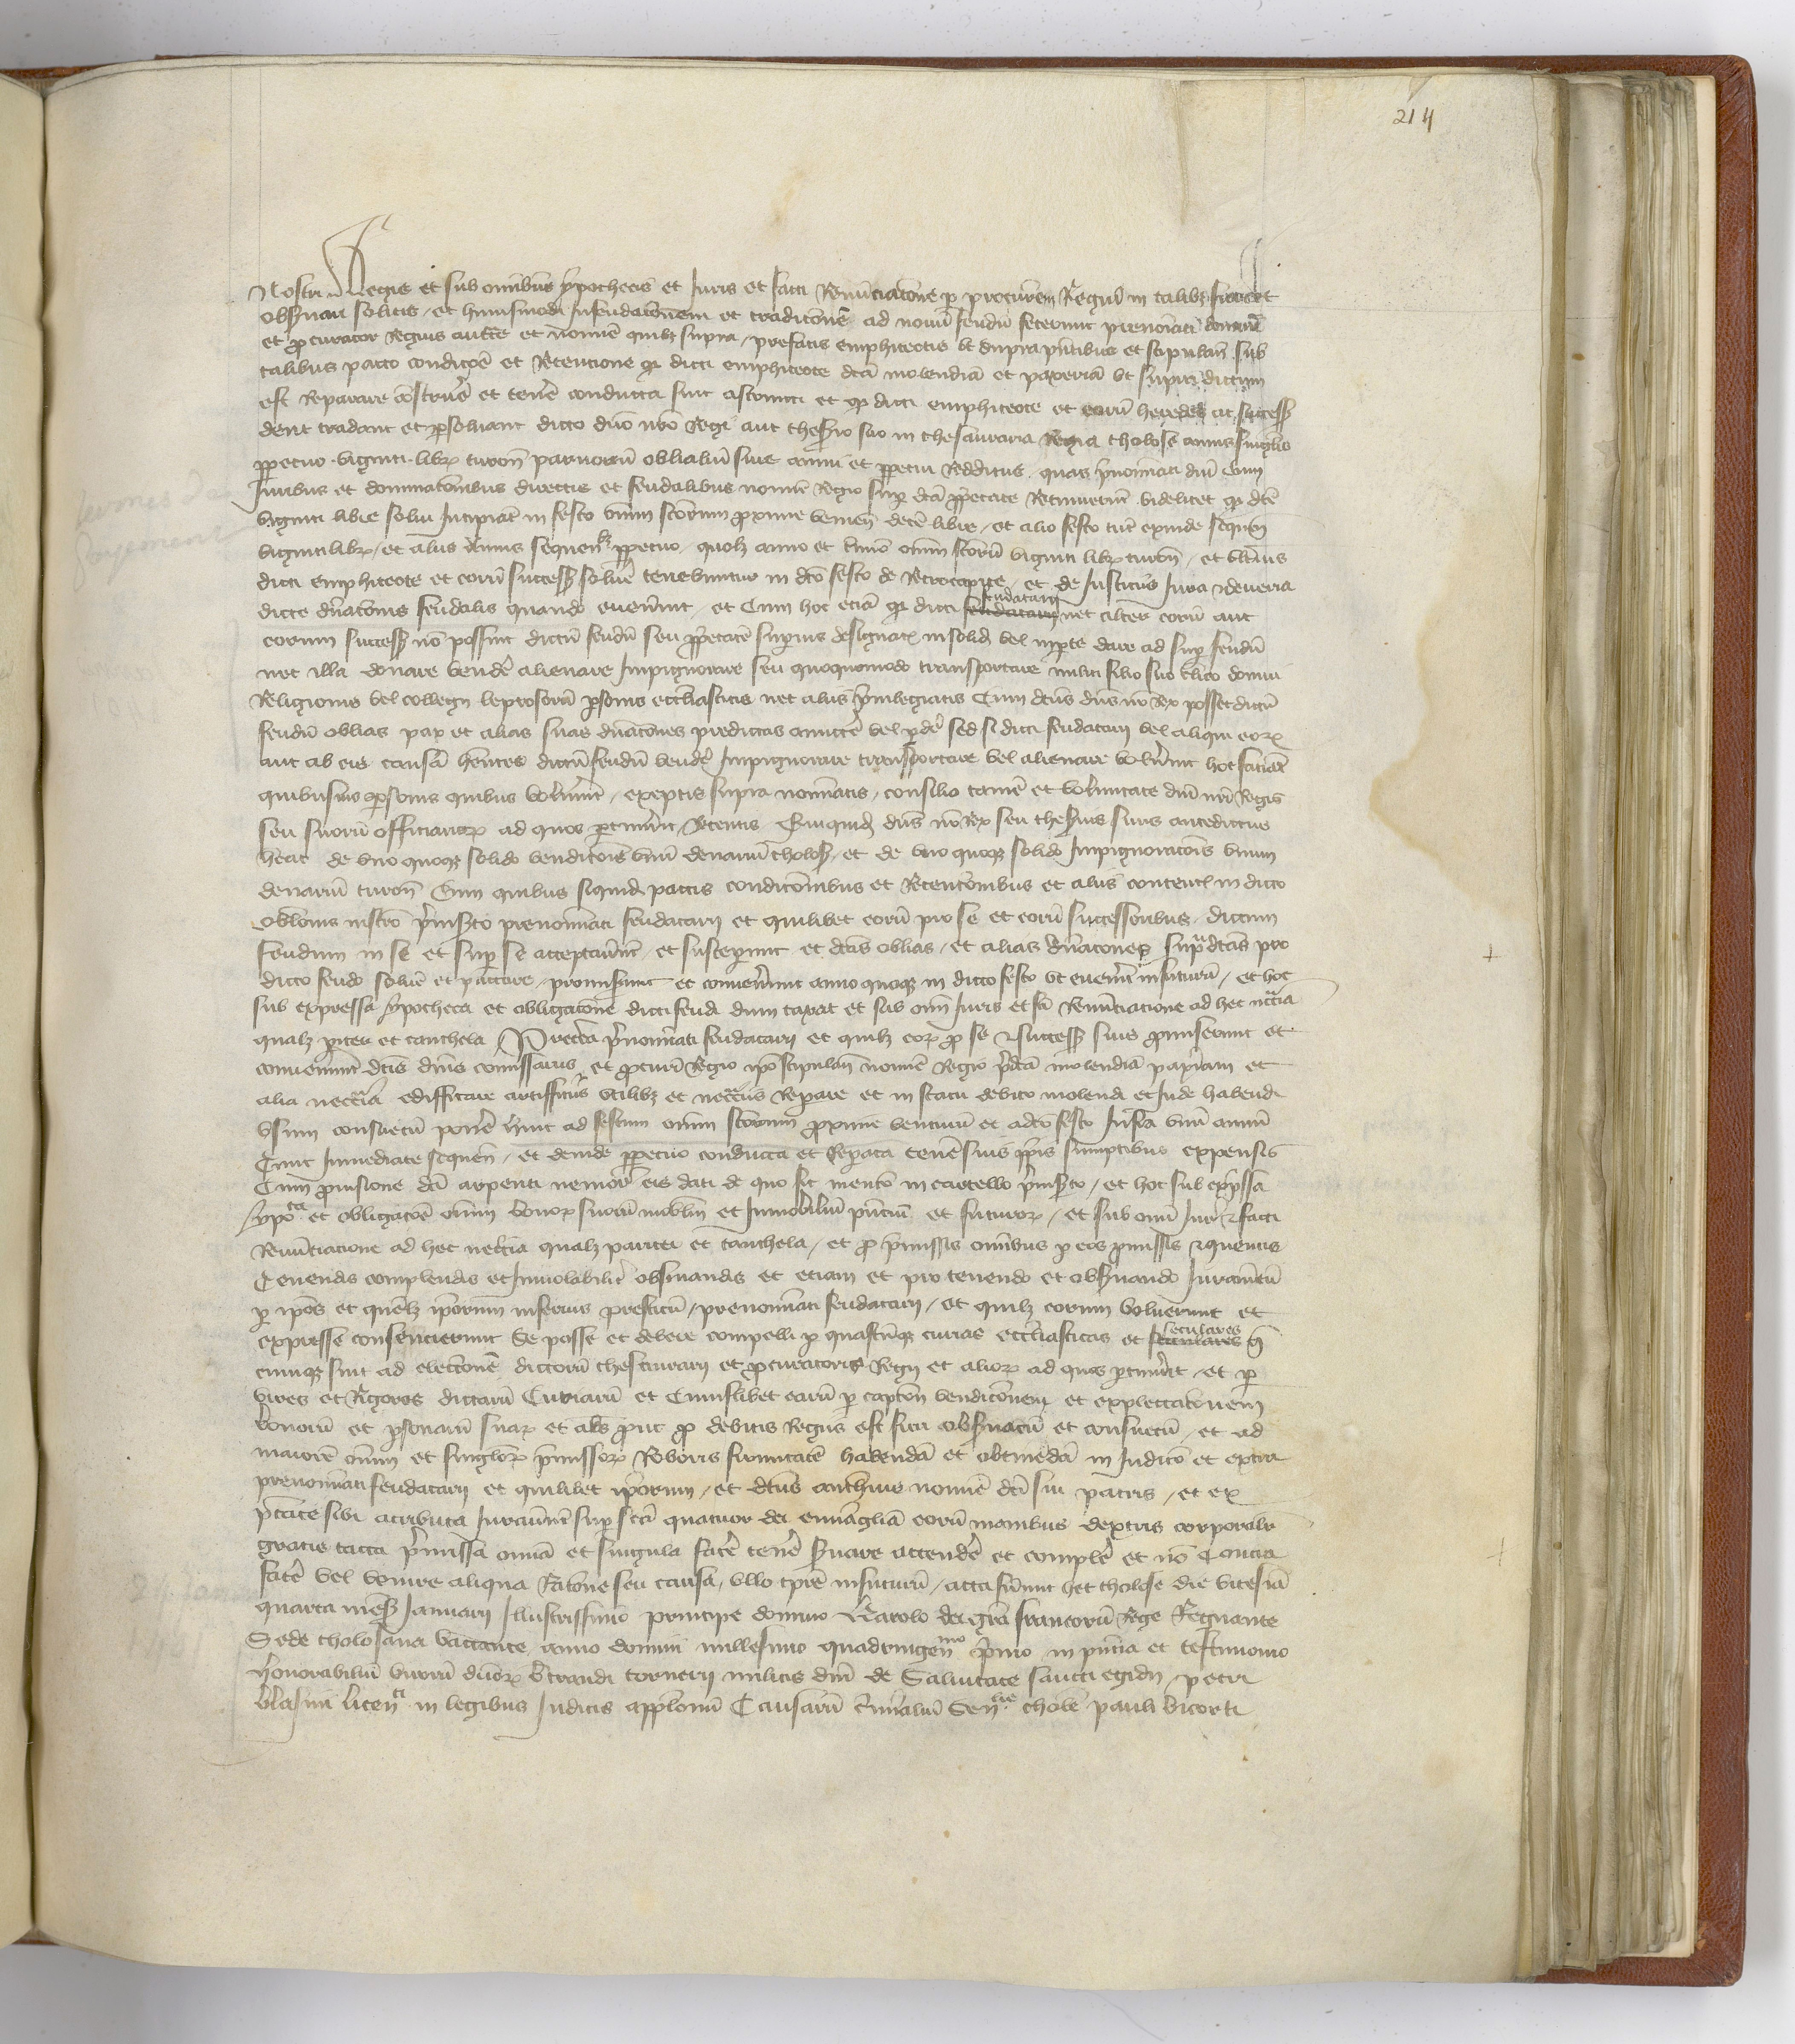 214
Nostri Regis et sub omnibus ypothecis et Iuris et facti Renunciatone p procurem Regiu in talibus
obsuari solitis / et huiusmodi Infeudatonem et traditone ad novu feudu fecerunt prenoiati
et procurator Regius aucte et nomie quibz supra / prefatis emphiteotis ut supra pntibus et stipulan sub
talibus pacto condicoe et Retentione q dicti emphiteote dcam molendia et paxeria ut supra dictum
est Reparare construe et tene conducta sint astricti et q dicti emphiteote et eoru heredes et success
dent tradant et psolvant dicto dno nro Regi aut thesrio suo in thesauraria Regia tholose annis singlis
ppetuo viginti libr turon parvoru obliaru sive annui et ppetui Redditus quas pnoiati dni cum
Iuribus et dominatonibus directis et feudalibus nomie Regio sup dca ppetate Retinuerut videlicet q dce
viginti libre solvi Incipiat in festo omniu sctorum proxime venien dece libre / et alio festo tuc exinde sequen
viginti libr / et aliis annis sequen ppetuo quolz anno et tmio omniu sctoru viginti libr turon / et ultius
dicti emphiteote et eoru success solve tenebuntur in dco festo de Retrocapite / et de Iusticiis Iura et deveria
dicte dnatonis feudalis quando evenerint / et Cum hoc etia q dicti feudatarii nec alter eoru aut
eorum success no possint dictu feudu seu ppetate supius designat insolid vel in pte dare ad sup feudu
nec illa donare vende alienare Impignorare seu quoquomodo transportare militi filio suo clico domui
Religionis vel collegii leprosoru psonis ecclasticis nec aliis pvilegiatis Cum dcus dns nr Rex posset dictu
feudu oblias pax et alias suas dnatones predictas amitte vel pde sed si dicti feudatarii vel aliqui eor
aut ab eis causa hentes dictu feudu vende Impignorare transportare vel alienare volerint hoc faciat
quibusvis psonis quibus volerint / exeptis supra nominatis / consilio tame et voluntate dni nri Regis
seu suoru officiarior ad quos ptinebit Retentis Cuiquid dns nr Rex seu thesrius suus antedictus
heat de uno quoqz solido venditois unu denariu tholos / et de uno quoqz solido Impignoratois unum
denariu turon Cum quibus siquid pactis condiconibus et Retentonibus et aliis content in dicto
oblonis instro pinscto prenominati feudatarii et quilibet eoru pro se et eoru successoribus dictum
feudum in se et sup se acceptarunt et susceperunt et dcas oblias / et alias dnatones supa dcas pro
dicto feudo solve et paccare promiserunt et convenerunt anno quoqz in dicto festo ut evenerit in futuru / et hoc
sub expressa ypotheca et obligatone dicti feudi dum taxat et sub omi Iuris et fci Renunciatione ad hec nccria
qualz piter et cauthela Preterea pnominati feudatarii et quilz eor p se et success suis pmiserunt et
convenerunt dcis dnis comissariis et pcuri Regio ipo stipulan nomie Regio pdca molendia paxeriam et
alia necria edifficare artifficiis utilibz et necriis Repare et in statu debito molendi et Inde habendi
usum consuetu pone hinc ad festum omniu sctorum proxime venturu et a dco festo Infra unu annu
tunc Inmediate sequen / et deinde ppetuo conducta et Repata tene suis ppis sumptibus expensis
Cum pvisione dci arpenti nemor eis dati de quo fit mento in cartello pinscto / et hoc sub expssa
ypoca et obligatoe omniu bonor suoru mobiliu et Inmobiliu pntiu et futuror / et sub omi Iur et facti
Renunciatione ad hec necria qualz pariter et cauthela / et p pmissis omibus p eos pmissis et quentis
tenendis complendis et Inviolabilit obsuandis et etiam et pro tenendo et obsuando Iurametu
p ipos et quelz iporum inferius prestitu / prenominati feudatarii / et quilz eorum voluerunt et
expresse consencierunt se posse et debere compelli p quascuqz curias ecclasticas et seculares q
cuiusqz sint ad electone dictoru thesaurarii et pcuratoris Regii et alior ad quos ptinebit / et p
vires et Rigores dictaru Curiaru et Cuiuslibet earu p capton venditonem et explectatonem
bonoru et psonaru suar et als put p debitis Regiis est fieri obsuatu et consuetu / et ad
maiore omniu et singlor pmissor Roboris firmitate habenda et obtineda in Iudico et extra
prenominati feudatarii et quilibet iporum / et dcus anthonius nomie dci sui patris / et ex
ptate sibi atributa Iuraverut sup scti quatuor dei evvaglia eoru manibus dextris corporalr
gratis tacta pmissa omia et singula face tene suare attende et comple et no contra
face vel venire aliqua Ratone seu causa / ullo tpre in futuru / acta fuerunt hec tholose die vicesia
quarta mens Ianuarii Illustrissimo principe domino Karolo dei gra francoru Rege Regnante
Sede tholosana vaccante anno domini millesimo quadringen mo primo in pntia et testimonio
honorabiliu viroru dnor btrandi tornerii militis dni de Salvitate sancti egidii petri
blasini licen ta in legibus Iudicis applonu Causaru Sen lie thole pauli bicorti